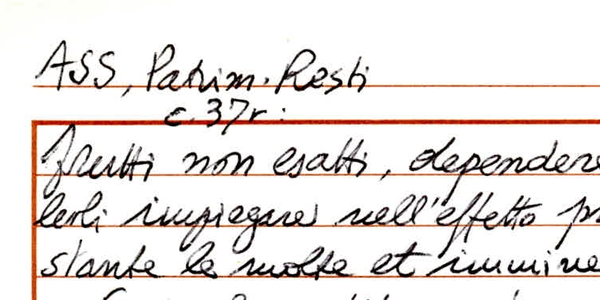 ASS, Patrim. Resti
c. 37r:
frutti non esatti, dependere
impiegare nell'effetto
stante le molte et immine